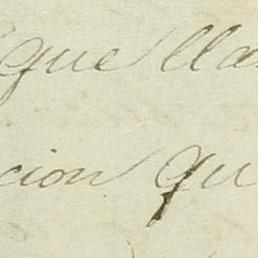 que lla
cion qu